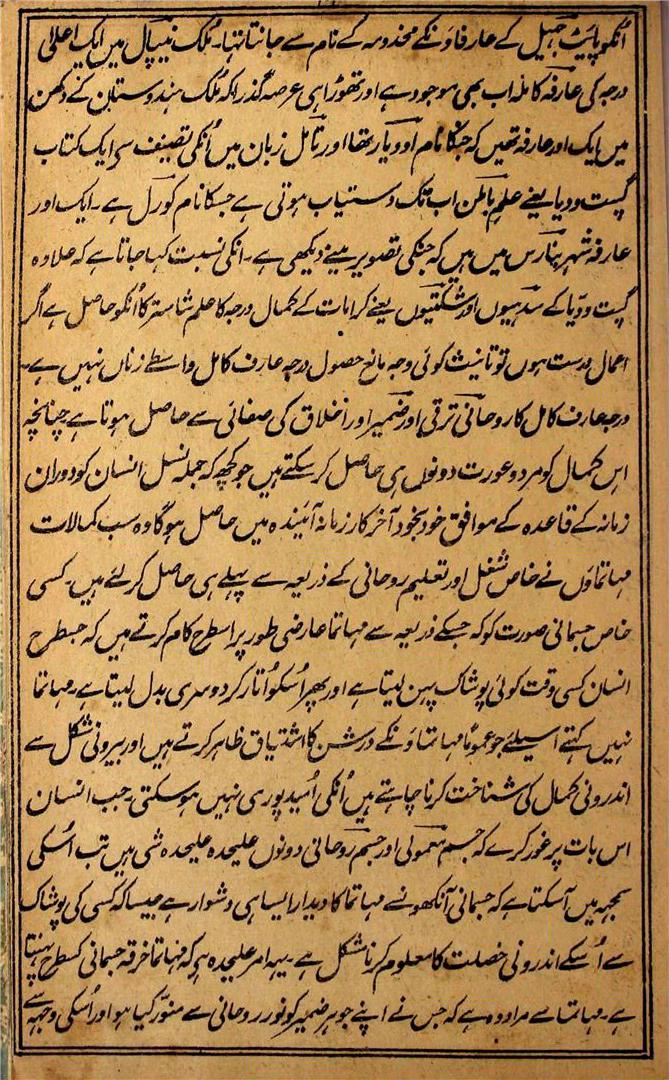 انکو پائیث جہیل کے عارفاونکے مخدومہ کے نام سے جانتا تہا۔ ملک نیپال میں ایک اعلیٰ
درجہ کی عارفہ کاملہ اب بھی موجود ہے اور تھوڑا ہی عرصہ گذرا کہ ملک ہندوستان کے دکھن
میں ایک اور عارفہ تھیں کہ جنکا نام اوویار تھا اور تامل زبان میں اُنکی تصنیف سی ایک کتاب
گپت ودیا یعنے علم باطن اب تک دستیاب ہوتی ہے جسکا نام کورل ہے۔ ایک اور
عارفہ شہر بنارس میں ہیں کہ جنکی تصویر مینے دیکھی ہے۔ انکی نسبت کہا جاتا ہے کہ علاوہ
گپت ودیا کے سدہیوں اور شکتیوں یعنے کرامات کے کمال درجہ کا علم شاستر کا اُنکو حاصل ہے اگر
اعمال درست ہوں تو تانیث کوئی وجہ مانع حصول درجہ عارف کامل واسطے زناں نہیں ہے۔
درجہ عارف کامل کا روحانی ترقی اور ضمیر اور اخلاق کی صفائی سے حاصل ہوتا ہے چنانچہ
اس کمال کو مرد و عورت دونوں ہی حاصل کر سکتے ہیں جو کچھ کہ جملہ نسل انسان کو دوران
زمانہ کے قاعدہ کے موافق خود بخود آخر کار زمانہ آیندہ میں حاصل ہوگا وہ سب کمالات
مہاتماوں نے خاص شغل اور تعلیم روحانی کے ذریعہ سے پہلے ہی حاصل کر لئے ہیں۔ کسی
خاص جسمانی صورت کو کہ جسکے ذریعہ سے مہاتما عارضی طور پر اسطرح کام کرتے ہیں کہ جسطرح
انسان کسی وقت کوئی پوشاک پہن لیتا ہے اور پھر اُسکو اُتار کر دوسری بدل لیتا ہے۔ مہاتما
نہیں کہتے اسیلئے جو عموماً مہاتماونکے درشن کا اشتیاق ظاہر کرتے ہیں اور بیرونی شکل سے
اندرونی کمال کی شناخت کرنا چاہتے ہیں اُنکی اُمید پوری نہیں ہوسکتی۔ جب انسان
اس بات پر غور کرے کہ جسم معمولی اور جسم روحانی دونوں علیحدہ علیحدہ شی ہیں تب اُسکی
سمجہہ میں آسکتا ہے کہ جسمانی آنکھونسے مہاتما کا دیدار ایسا ہی دشوار ہے جیسا کہ کسی کی پوشاک
سے اُسکے اندرونی خصلت کا معلوم کرنا مشکل ہے۔ یہہ امر علیحدہ ہی کہ مہاتما خرقہ جسمانی کسطرح پہنتا
ہے۔ مہاتما سے مراد وہ ہے کہ جس نے اپنے جوہر ضمیر کو نور روحانی سے منور کیا ہو اور اُسکی وجہہ سے